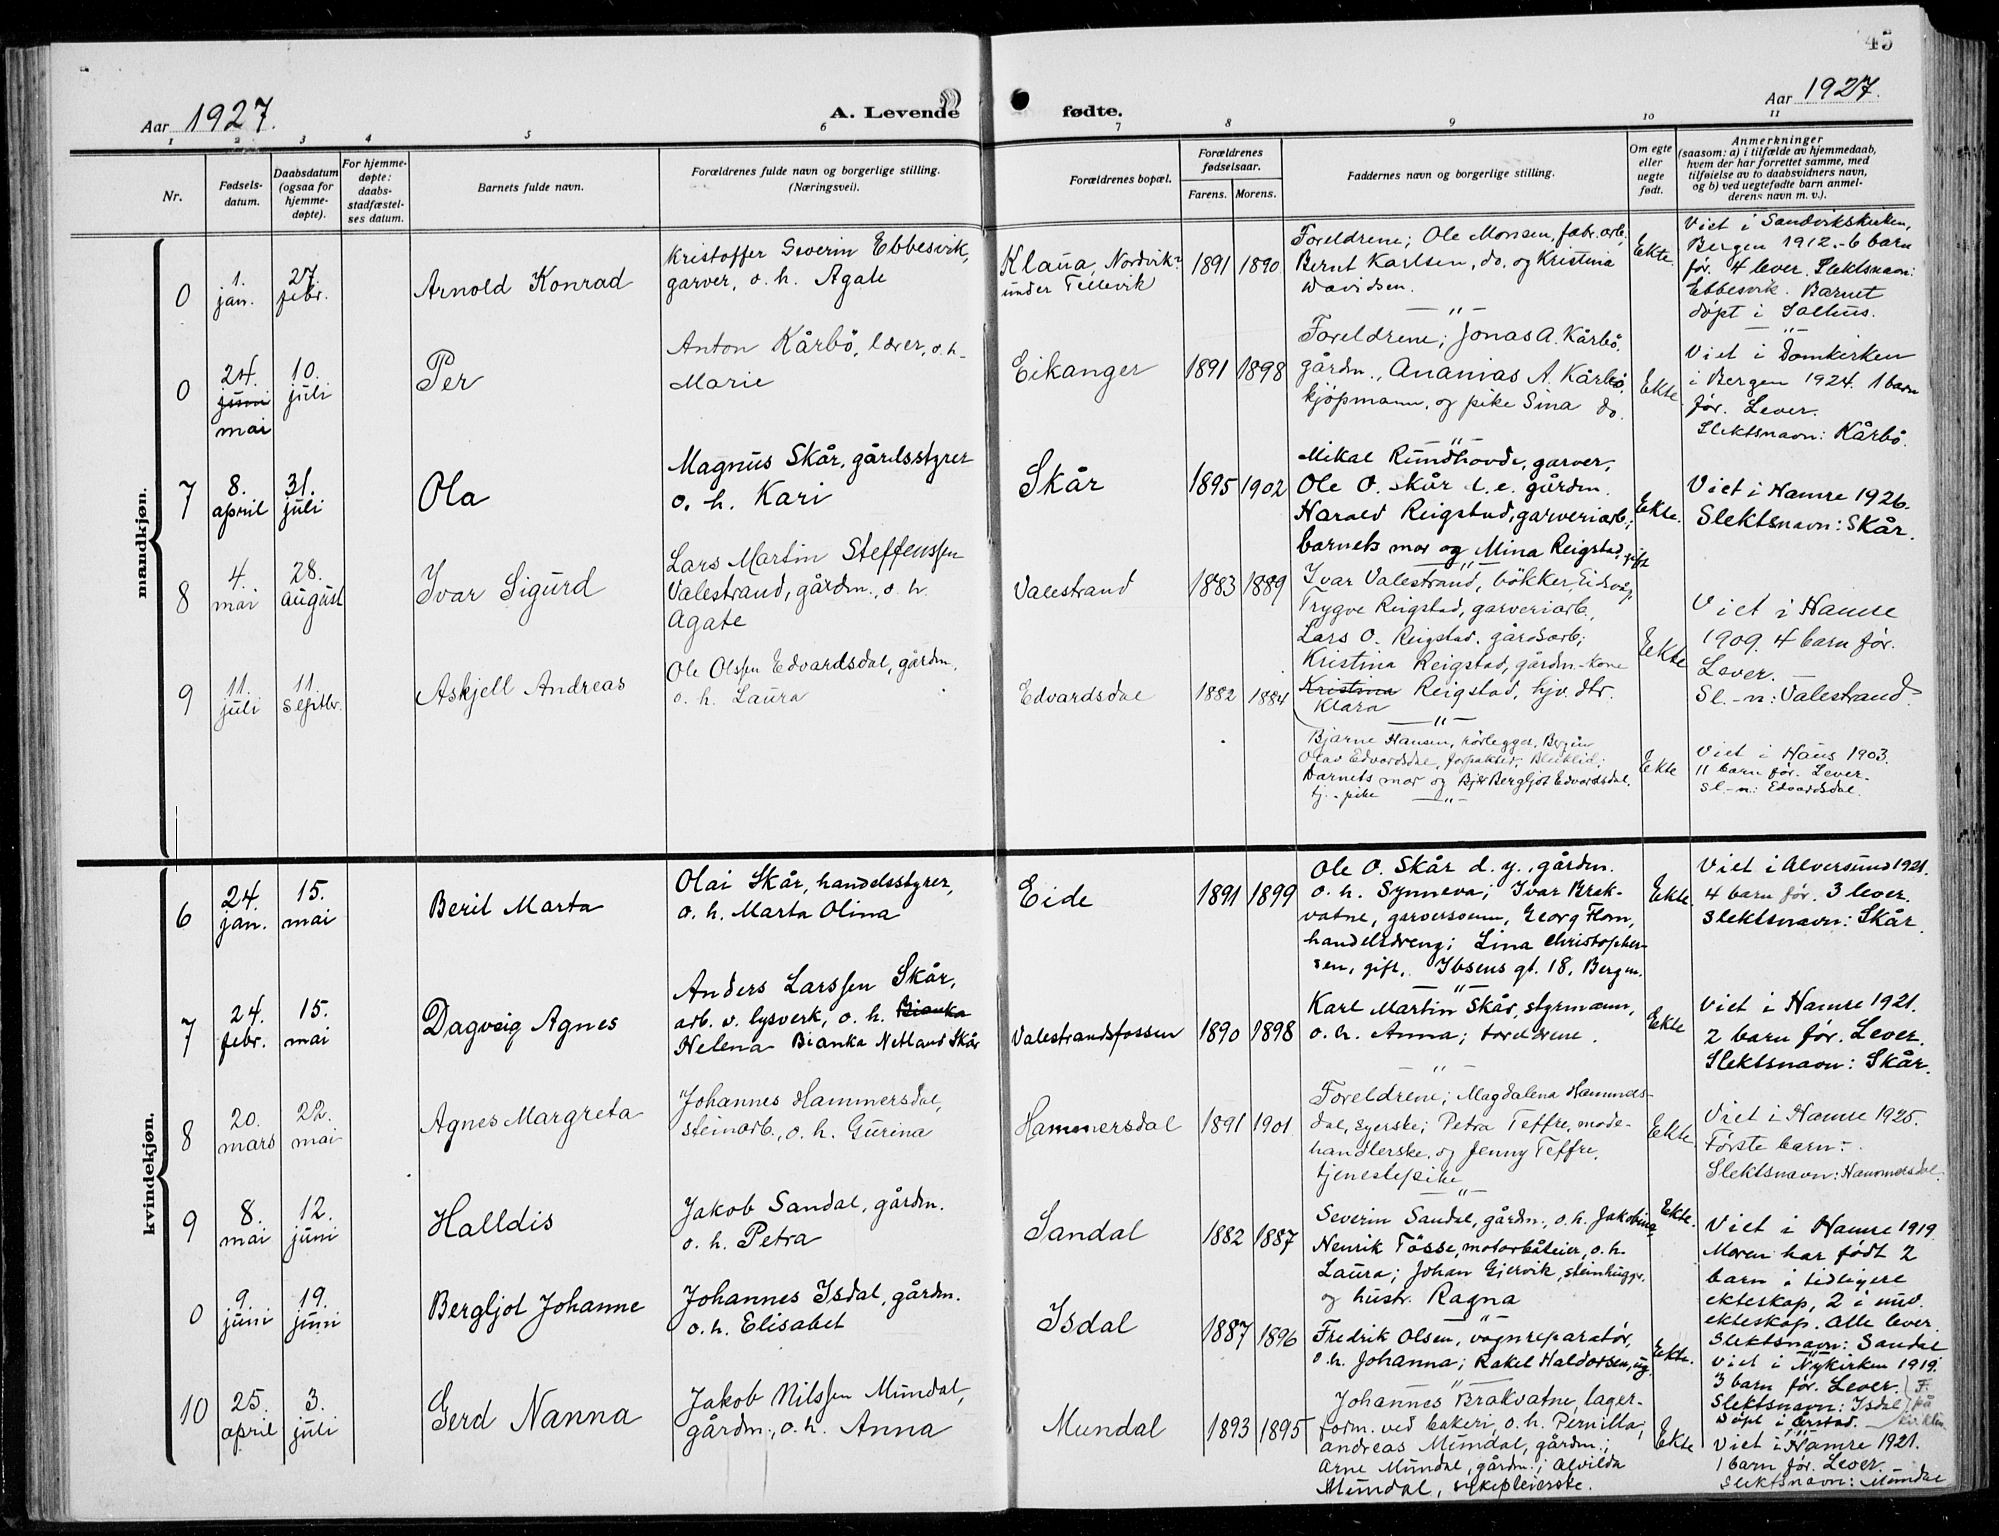 45
Aar 1927.
A. Levende fødte.
Aar 1927.
1 2 3 4 5 6 7 8 9 10 11
Nr.
Fødsels-
datum.
Daabsdatum
(ogsaa for
hjemme-
døpte).
For hjemme-
døpte:
daabs-
stadfæstel-
ses datum.
Barnets fulde navn.
Forældrenes fulde navn og borgerlige stilling.
(Næringsvei).
Forældrenes bopæl.
Forældrenes
fødselsaar.
Farens. Morens.
Faddernes navn og borgerlige stilling.
Om egte
eller
uegte
født.
Anmerkninger
(saasom: a) i tilfælde av hjemmedaab,
hvem der har forrettet samme, med
tilføielse av to daabsvidners navn,
og b) ved uegtefødte barn anmel-
derens navn m. v.).
mandkjøn.
0
1.
jan.
27.
febr.
Arnold Konrad
Kristoffer Severin Ebbesvik,
garver, o. h. Agate
Klaua, Nordvik
under Tellevik
1891 1890
Foreldrene; Ole Monsen, fabr. arb.
Bernt Karlsen, do. og Kristina
Davidsen.
Ekte.
Viet i Sandvikskirken,
Bergen 1912. - 6 barn
før. 4 lever. Slektsnavn:
Ebbesvik. Barnet
døpt i Salhus.
0
24.
juni
mai
10.
juli
Per
Anton Kårbö, lærer, o. h.
Marie
Eikanger
1891 1898
Foreldrene; Jonas A. Kårbö,
gårdm., Ananias A. Kårbö,
kjöpmann, og pike Sina do.
Ekte.
Viet i Domkirken
i Bergen 1924. 1 barn
før. Lever.
Slektsnavn: Kårbö.
7
8.
april
31.
juli
Ola
Magnus Skår, gårdsstyrer
o. h. Kari
Skår
1895 1902
Mikal Rundhovde, garver,
Ole O. Skår d. e. gårdm.
Harald Reigstad, garveriarb.;
barnets mor og Mina Reigstad, gift
Ekte.
Viet i Hamre 1926.
Slektsnavn: Skår.
8
4.
mai
28.
august
Ivar Sigurd
Lars Martin Steffenssen
Valestrand, gårdm., o. h.
Agate
Valestrand
1883 1889
Ivar Valestrand, bökker, Eidsvåg
Trygve Reigstad, garveriarb.,
Lars O. Reigstad, gårdsarb.;
Kristina Reigstad, gårdm.-kone
Kristina Reigstad, hjv. dtr.
Klara
Ekte
Viet i Hamre
1909. 4 barn før.
Lever.
Sl.-n: Valestrand.
9
11.
juli
11.
septbr.
Askjell Andreas
Ole Olssen Edvardsdal, gårdm.
o. h. Laura
Edvardsdal
1882 1884
Bjarne Hansen, rörlegger, Bergen
Olav Edvardsdal, forpakter,
Barnets mor og Bergljot Edvardsdal,
tj.-pike
Ekte
Viet i Haus 1903.
11 barn før. Lever.
Sl.-n: Edvardsdal.
kvindekjøn.
6
24.
jan.
15.
mai
Beril Marta
Olai Skår, handelsstyrer,
o. h. Marta Olina
Eide
1891 1899
Ole O. Skår d. y., gårdm.
o. h. Synneva; Ivar Brek-
vatne, garversvenn, Georg Flom,
handelsdreng; Lina Christopher-
sen, gift, Ibsens gt. 18, Bergen.
Ekte.
Viet i Alversund 1921.
4 barn før. 3 lever.
Slektsnavn: Skår.
7
24.
febr.
15.
mai
Dagveig Agnes
Anders Larssen Skår,
arb. v. lysverk, o. h. Bianka
Helena Bianka Netland Skår
Valestrandsfossen
1890 1898
Karl Martin Skår, styrmann,
o. h. Anna; foreldrene.
Ekte
Viet i Hamre 1921.
2 barn før. Lever.
Slektsnavn: Skår.
8
20.
mars
22.
mai
Agnes Margreta
Johannes Hammersdal,
steinarb., o. h. Gurina
Hammersdal
1891 1901
Foreldrene; Magdalena Hammers-
dal, syerske; Petra Teffre, mode-
handlerske, og Jenny Teffre,
tjenestepike
Ekte.
Viet i Hamre 1925.
Förste barn.
Slektsnavn: Hammersdal.
9
8.
mai
12.
juni
Halldis
Jakob Sandal, gårdm.
o. h. Petra
Sandal
1882 1887
Severin Sandal, gårdm., o. h. Jakobina,
Henrik Tösse, motorbåteier, o. h.
Laura; Johan Gjervik, steinhugger
og hustr. Ragna
Ekte.
Viet i Hamre 1919.
Moren har födt 2
barn i tidligere
ekteskap, 2 i nuv.
ekteskap. Alle lever.
Slektsnavn: Sandal
0
9.
juni
19.
juni
Bergljot Johanne
Johannes Isdal, gårdm.
o. h. Elisabet
Isdal
1887 1896
Fredrik Olsen, vognreparatör,
o. h. Johanna; Rakel Haldorsen, ug.
Ekte.
Viet i Nykirken 1919.
3 barn før. Lever.
Slektsnavn: Isdal
Döpt i Årstad.
10
25.
april
3.
juli
Gerd Nanna
Jakob Nilssen Mundal,
gårdm., o. h. Anna
Mundal
1893 1895
Johannes Brakvatne, lager-
form. ved bakeri, o. h. Pernilla,
Andreas Mundal, gårdm.;
Arne Mundal, gårdm.; Alvilda
Mundal, sykepleierske.
Ekte
Viet i Hamre 1921.
1 barn før. Lever.
Slektsnavn: Mundal